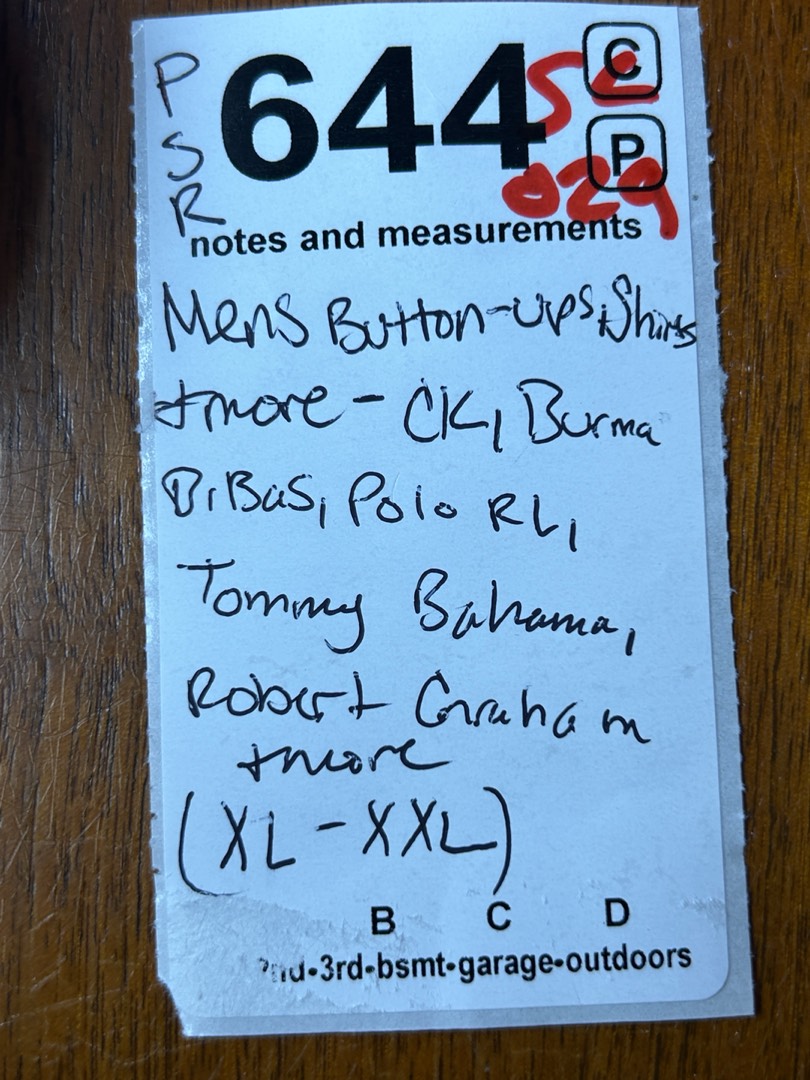 P
S
R
644
52
C
P
029
notes and measurements
Mens Button-ups + Shirts
+ more - CK, Burma
BiBas, Polo RL,
Tommy Bahama,
Robert Graham
+ more
(XL - XXL)
B C D
2nd•3rd•bsmt•garage•outdoors